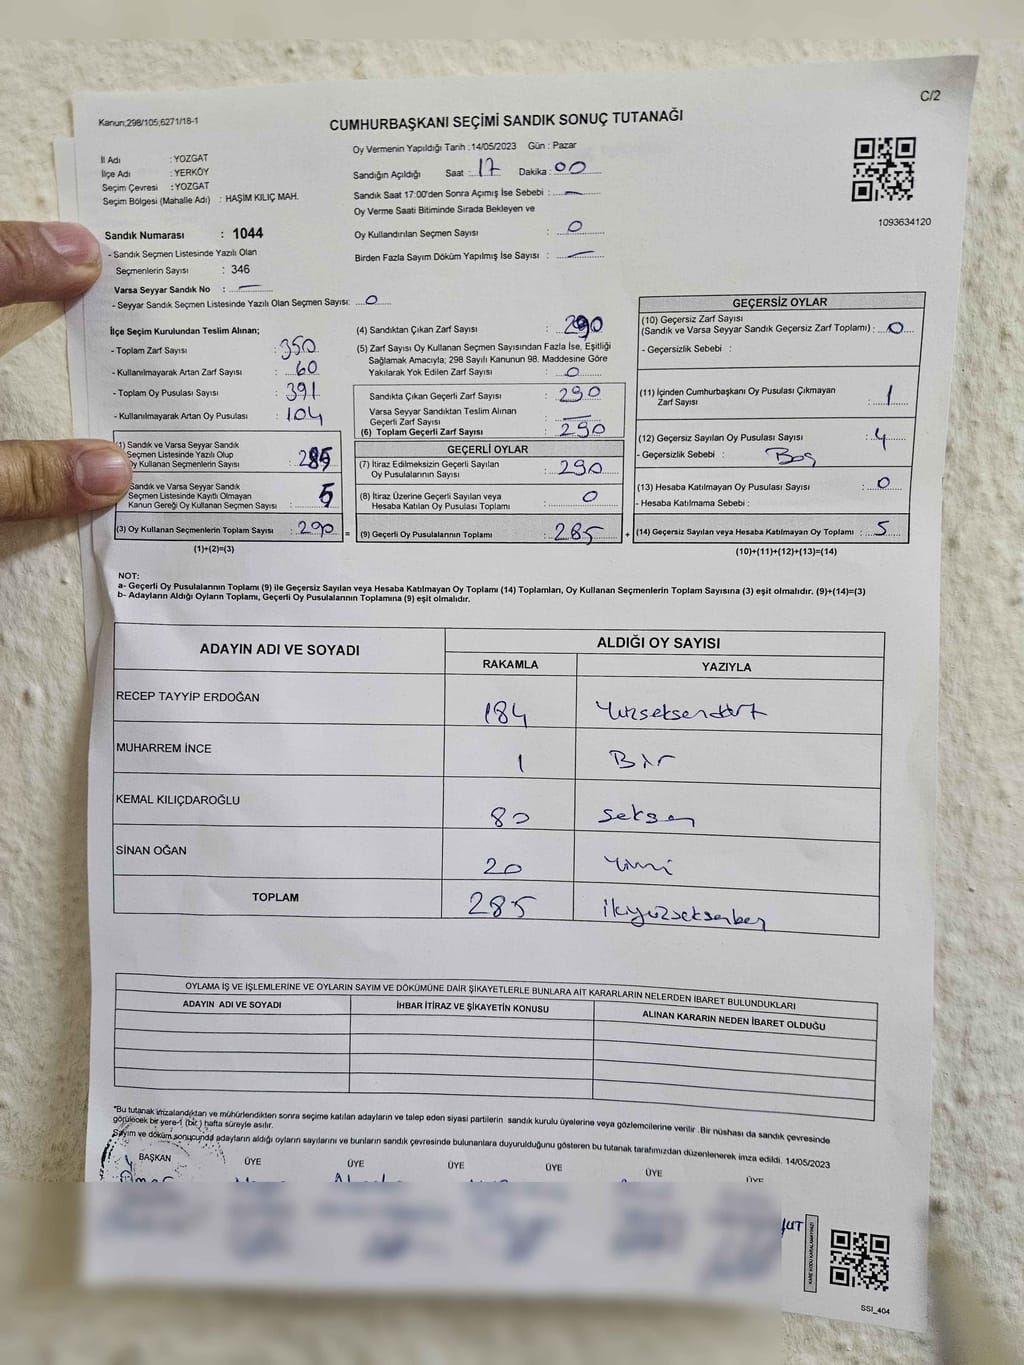 C/2
Kanun;298/105;6271/18-1
CUMHURBAŞKANI SEÇİMİ SANDIK SONUÇ TUTANAĞI
İl Adı : YOZGAT
İlçe Adı : YERKÖY
Seçim Çevresi : YOZGAT
Seçim Bölgesi (Mahalle Adı) : HAŞİM KILIÇ MAH.
Sandık Numarası : 1044
- Sandık Seçmen Listesinde Yazılı Olan
Seçmenlerin Sayısı : 346
Varsa Seyyar Sandık No : —
- Seyyar Sandık Seçmen Listesinde Yazılı Olan Seçmen Sayısı: 0
Oy Vermenin Yapıldığı Tarih : 14/05/2023 Gün : Pazar
Sandığın Açıldığı Saat : 17 Dakika : 00
Sandık Saat 17:00'den Sonra Açımış İse Sebebi : —
Oy Verme Saati Bitiminde Sırada Bekleyen ve
Oy Kullandırılan Seçmen Sayısı : 0
Birden Fazla Sayım Döküm Yapılmış İse Sayısı : —
1093634120
İlçe Seçim Kurulundan Teslim Alınan;
- Toplam Zarf Sayısı : 350
- Kullanılmayarak Artan Zarf Sayısı : 60
- Toplam Oy Pusulası Sayısı : 391
- Kullanılmayarak Artan Oy Pusulası : 104
1) Sandık ve Varsa Seyyar Sandık
Seçmen Listesinde Yazılı Olup
Oy Kullanan Seçmenlerin Sayısı : 285
Sandık ve Varsa Seyyar Sandık
Seçmen Listesinde Kayıtlı Olmayan
Kanun Gereği Oy Kullanan Seçmen Sayısı : 5
(3) Oy Kullanan Seçmenlerin Toplam Sayısı : 290 =
(1)+(2)=(3)
(4) Sandıktan Çıkan Zarf Sayısı : 290
(5) Zarf Sayısı Oy Kullanan Seçmen Sayısından Fazla İse, Eşitliği
Sağlamak Amacıyla; 298 Sayılı Kanunun 98. Maddesine Göre
Yakılarak Yok Edilen Zarf Sayısı : 0
Sandıkta Çıkan Geçerli Zarf Sayısı : 290
Varsa Seyyar Sandıktan Teslim Alınan
Geçerli Zarf Sayısı : —
(6) Toplam Geçerli Zarf Sayısı : 290
GEÇERLİ OYLAR
(7) İtiraz Edilmeksizin Geçerli Sayılan
Oy Pusulalarının Sayısı : 290
(8) İtiraz Üzerine Geçerli Sayılan veya
Hesaba Katılan Oy Pusulası Toplamı : 0
(9) Geçerli Oy Pusulalarının Toplamı : 285 +
GEÇERSİZ OYLAR
(10) Geçersiz Zarf Sayısı
(Sandık ve Varsa Seyyar Sandık Geçersiz Zarf Toplamı) : 0
- Geçersizlik Sebebi :
(11) İçinden Cumhurbaşkanı Oy Pusulası Çıkmayan
Zarf Sayısı : 1
(12) Geçersiz Sayılan Oy Pusulası Sayısı : 4
- Geçersizlik Sebebi : Boş
(13) Hesaba Katılmayan Oy Pusulası Sayısı : 0
- Hesaba Katılmama Sebebi :
(14) Geçersiz Sayılan veya Hesaba Katılmayan Oy Toplamı : 5
(10)+(11)+(12)+(13)=(14)
NOT:
a- Geçerli Oy Pusulalarının Toplamı (9) ile Geçersiz Sayılan veya Hesaba Katılmayan Oy Toplamı (14) Toplamları, Oy Kullanan Seçmenlerin Toplam Sayısına (3) eşit olmalıdır. (9)+(14)=(3)
b- Adayların Aldığı Oyların Toplamı, Geçerli Oy Pusulalarının Toplamına (9) eşit olmalıdır.
ADAYIN ADI VE SOYADI ALDIĞI OY SAYISI
RAKAMLA YAZIYLA
RECEP TAYYİP ERDOĞAN 184 Yüzseksendört
MUHARREM İNCE 1 Bir
KEMAL KILIÇDAROĞLU 80 Seksen
SİNAN OĞAN 20 Yirmi
TOPLAM 285 ikiyüzseksenbeş
OYLAMA İŞ VE İŞLEMLERİNE VE OYLARIN SAYIM VE DÖKÜMÜNE DAİR ŞİKAYETLERLE BUNLARA AİT KARARLARIN NELERDEN İBARET BULUNDUKLARI
ADAYIN ADI VE SOYADI İHBAR İTİRAZ VE ŞİKAYETİN KONUSU ALINAN KARARIN NEDEN İBARET OLDUĞU
"Bu tutanak imzalandıktan ve mühürlendikten sonra seçime katılan adayların ve talep eden siyasi partilerin sandık kurulu üyelerine veya gözlemcilerine verilir. Bir nüshası da sandık çevresinde
görülecek bir yere-1 (bir) hafta süreyle asılır.
Sayım ve döküm sonucunda adayların aldığı oyların sayılarını ve bunların sandık çevresinde bulunanlara duyurulduğunu gösteren bu tutanak tarafımızdan düzenlenerek imza edildi. 14/05/2023
BAŞKAN ÜYE ÜYE ÜYE ÜYE ÜYE ÜYE
KARE KODU KARALAMAYINIZ!
SSI_404